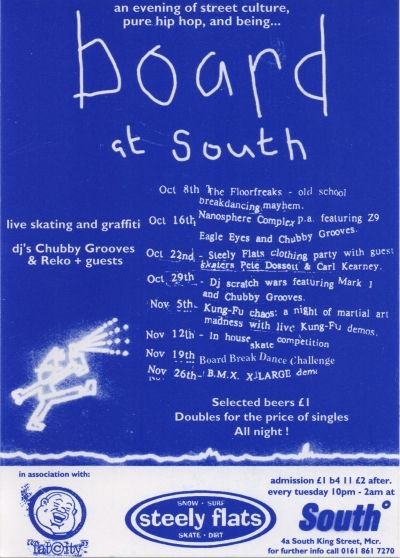 an evening of street culture,
pure hip hop, and being...
board
at South
Oct 8th The Floorfreaks - old school
breakdancing mayhem.
live skating and graffiti
dj's Chubby Grooves
& Reko + guests
Oct 16th Nanosphere Complex p.a. featuring Z9
Eagle Eyes and Chubby Grooves.
Oct 22nd - Steely Flats clothing party with guest
skaters Pete Dossett & Carl Kearney.
Oct 29th - Dj scratch wars featuring Mark 1
and Chubby Grooves.
Nov 5th- Kung-Fu chaos: a night of martial art
madness with live Kung-Fu demos.
Nov 12th - In house
skate competition
Nov 19th Board Break Dance Challenge
Nov 26th- B.M.X. X-LARGE demo
Selected beers £1
Doubles for the price of singles
All night !
in association with:
"fatCity"
SNOW · SURF
steely flats
SKATE · DIRT
admission £1 b4 11 £2 after.
every tuesday 10pm - 2am at
South°
4a South King Street, Mcr.
for further info call 0161 861 7270